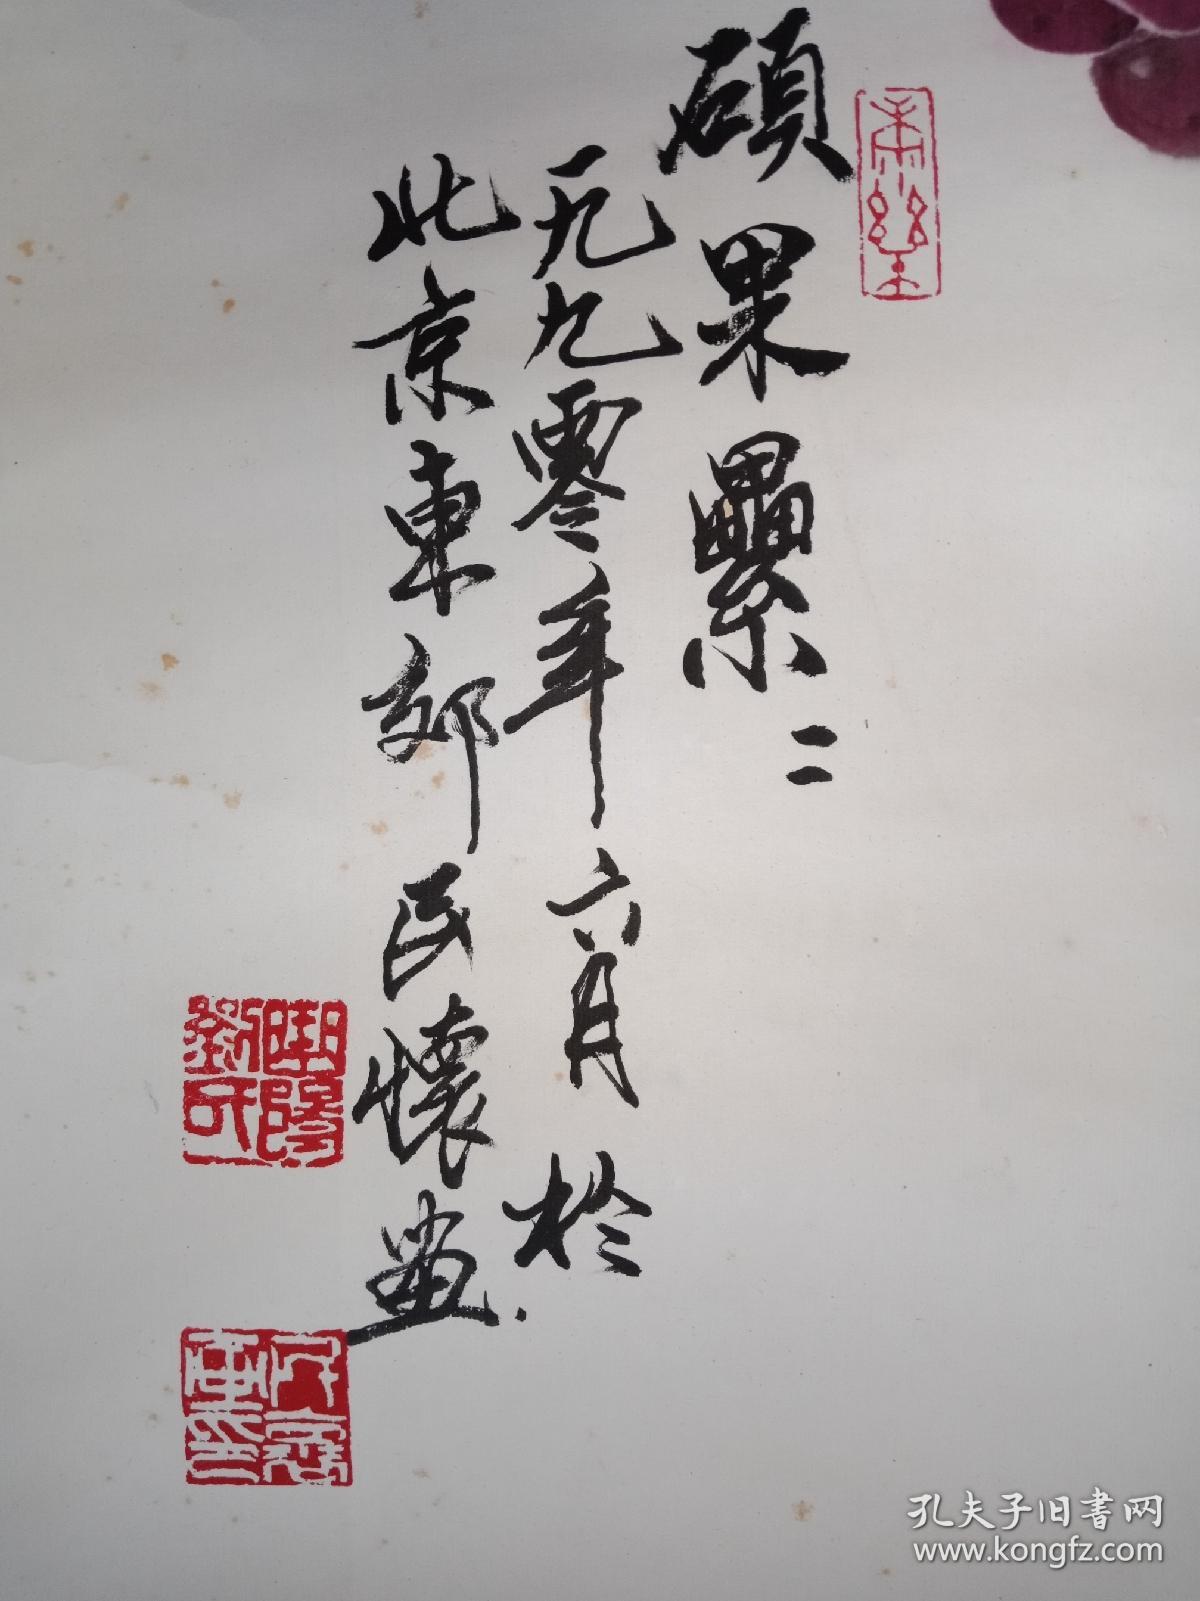 碩果纍二
一九九零年六月於
北京東郊民懷畫
劉氏
孔夫子旧书网
www.kongfz.com